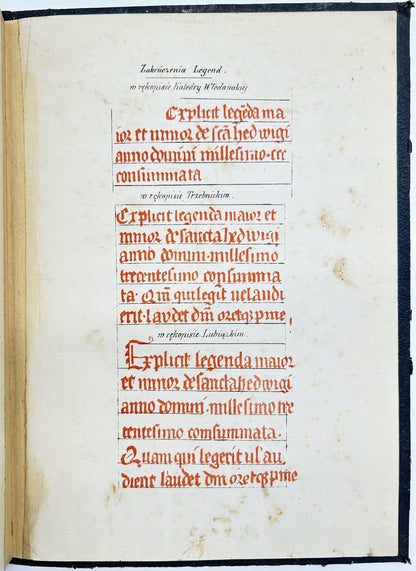 Zakończenia Legend.
w rękopisie Katedry Włocławskiej.
Explicit legēda ma
ior et minor de scā hedwigi
anno domini millesimo ccc
consummata
w rękopisie Trzebnickim.
Explicit legenda maior et
minor de sancta hedwigi
anno domini millesimo
trecentesimo consumma
ta. Qm̄ qui legit vel audi
erit laudet dm̄ oretqз p me
w rękopisie Lubiązkim.
Explicit legenda maior
et minor de sancta hedwigi
anno domini millesimo tre
centesimo comsummata.
Quam qui legerit ul' au
dient laudet dm oretqз p me